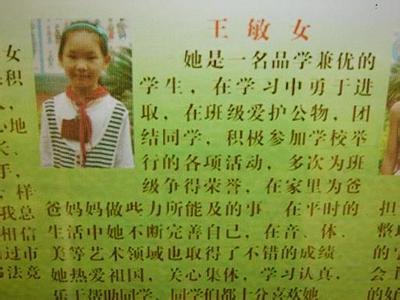 王 敏 女
她是一名品学兼优的
学生，在学习中勇于进
取，在班级爱护公物，团
结同学，积极参加学校举
行的各项活动，多次为班
级争得荣誉，在家里为爸
爸妈妈做些力所能及的事 在平时的
生活中她不断完善自己，在音、体、
美等艺术领域也取得了不错的成绩
她热爱祖国，关心集体，学习认真，
乐于帮助同学，同学们都十分喜欢她
女
积
心地
长、
手，
样
我总
相信
过市
书法竞
担
整
的
会
的好